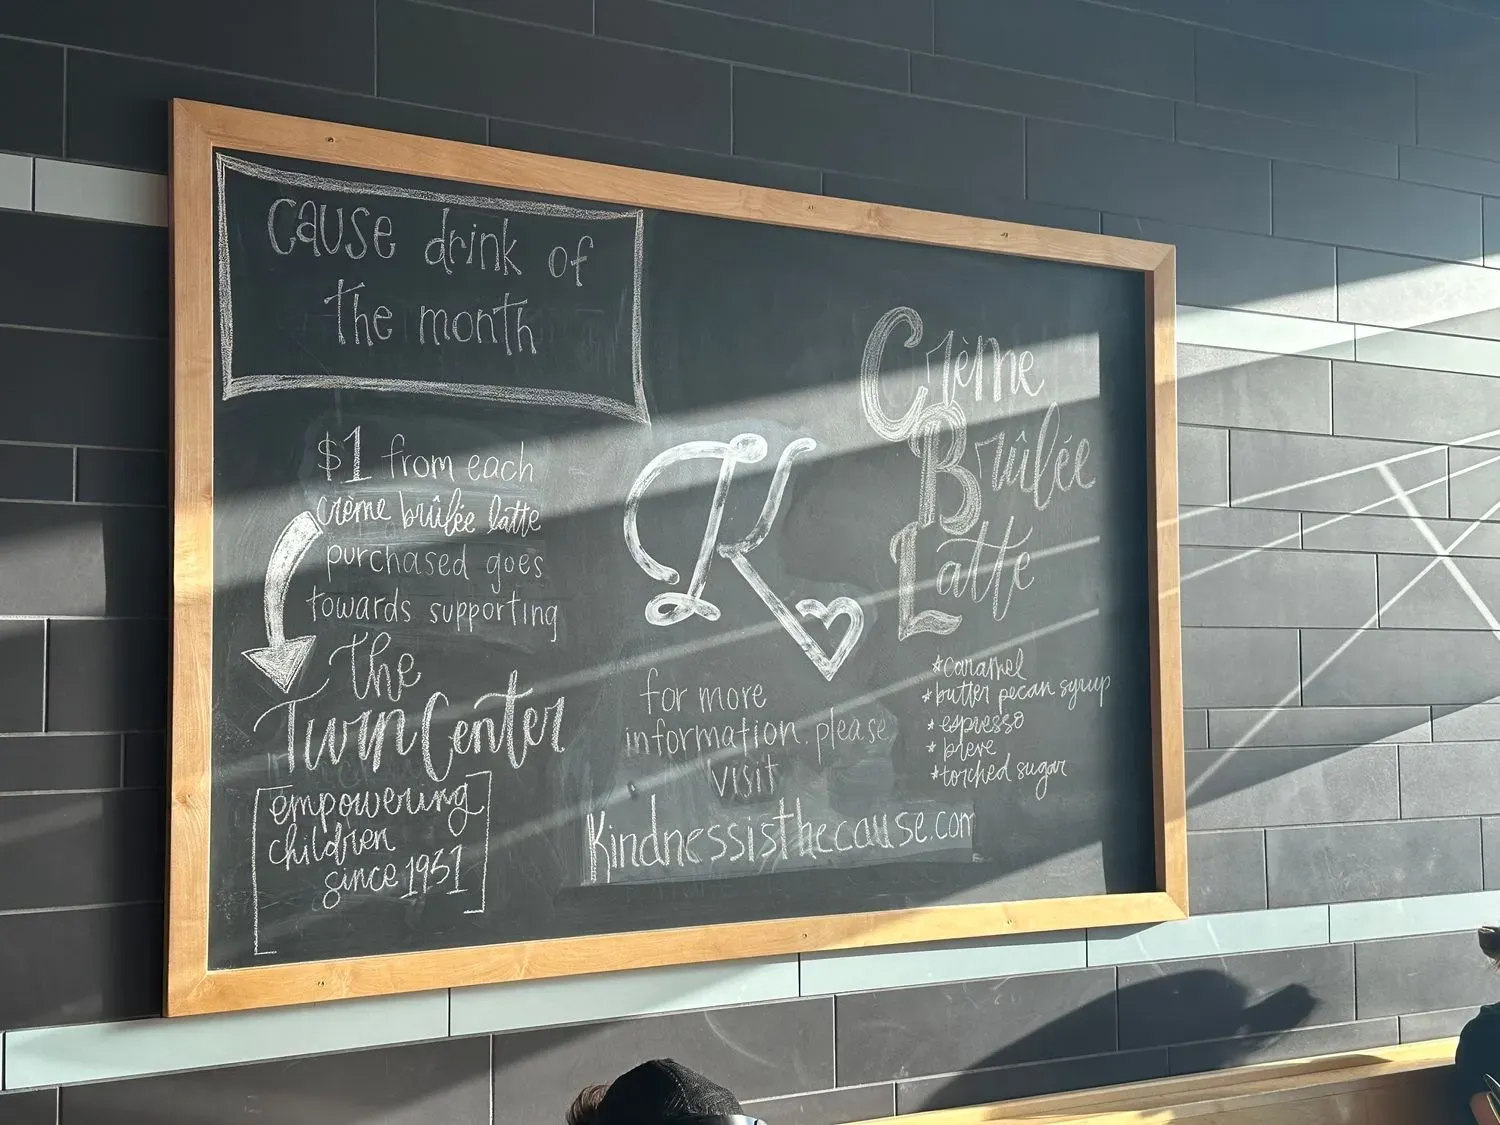 cause drink of
the month
$1 from each
crème brûlée latte
purchased goes
towards supporting
the
Twin Center
[empowering
children
since 1931]
K
for more
information, please
visit
Kindnessisthecause.com
Crème
Brûlée
Latte
*caramel
*butter pecan syrup
*espresso
*breve
*torched sugar